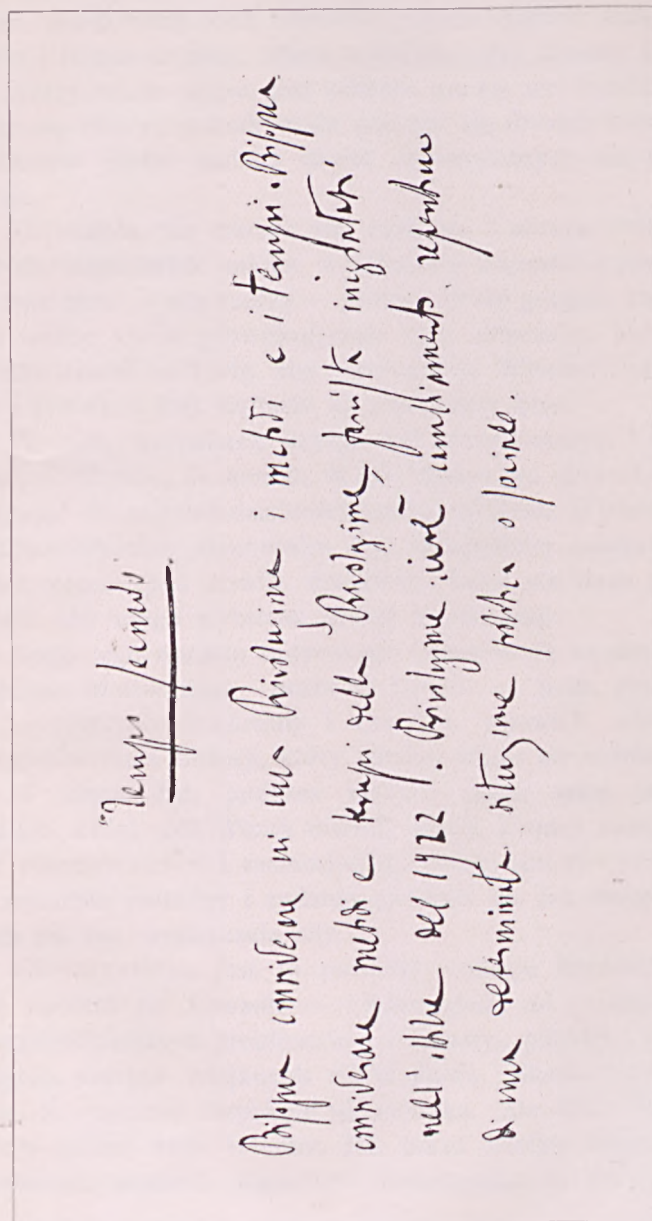 "Tempo secondo.
Bisogna considerare in una Rivoluzione i metodi e i tempi. Bisogna
considerare metodi e tempi della Rivoluzione fascista iniziatasi
nell'ottobre del 1922. Rivoluzione, cioè cambiamento repentino
di una determinata situazione politica e sociale.